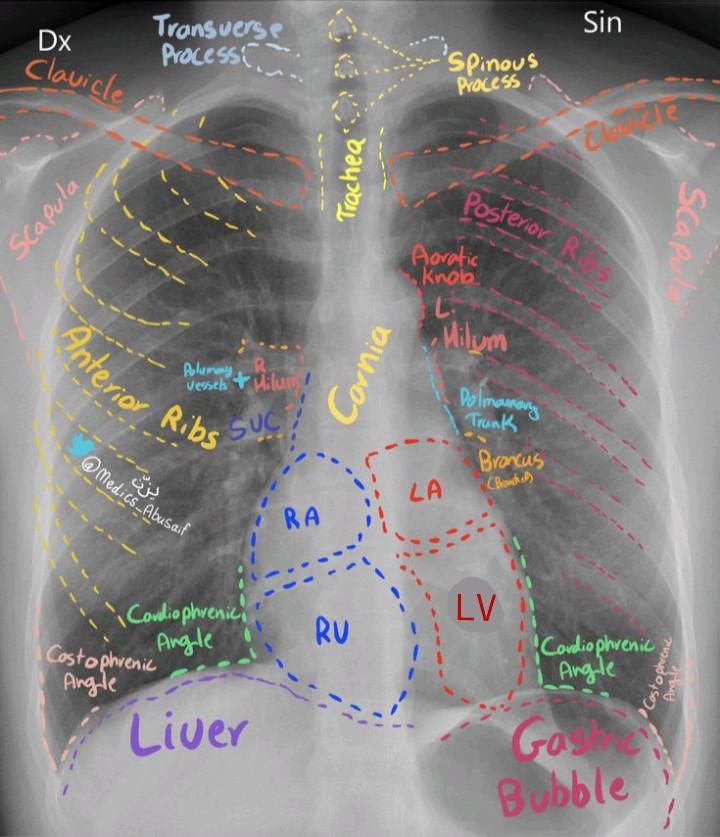 Dx
Sin
Transverse
Process
Spinous
Process
Clavicle
Clavicle
Trachea
Scapula
Scapula
Posterior Ribs
Aoratic
Knob
L.
Hilum
Anterior Ribs
Pulmonary
vessels
+
R
Hilum
SVC
Carnia
Pulmounary
Trunk
Broncus
(Branched)
@Medics_Abusaif
RA
LA
RV
LV
Cardiophrenic
Angle
Cardiophrenic
Angle
Costophrenic
Angle
Costophrenic
Angle
Liver
Gastric
Bubble